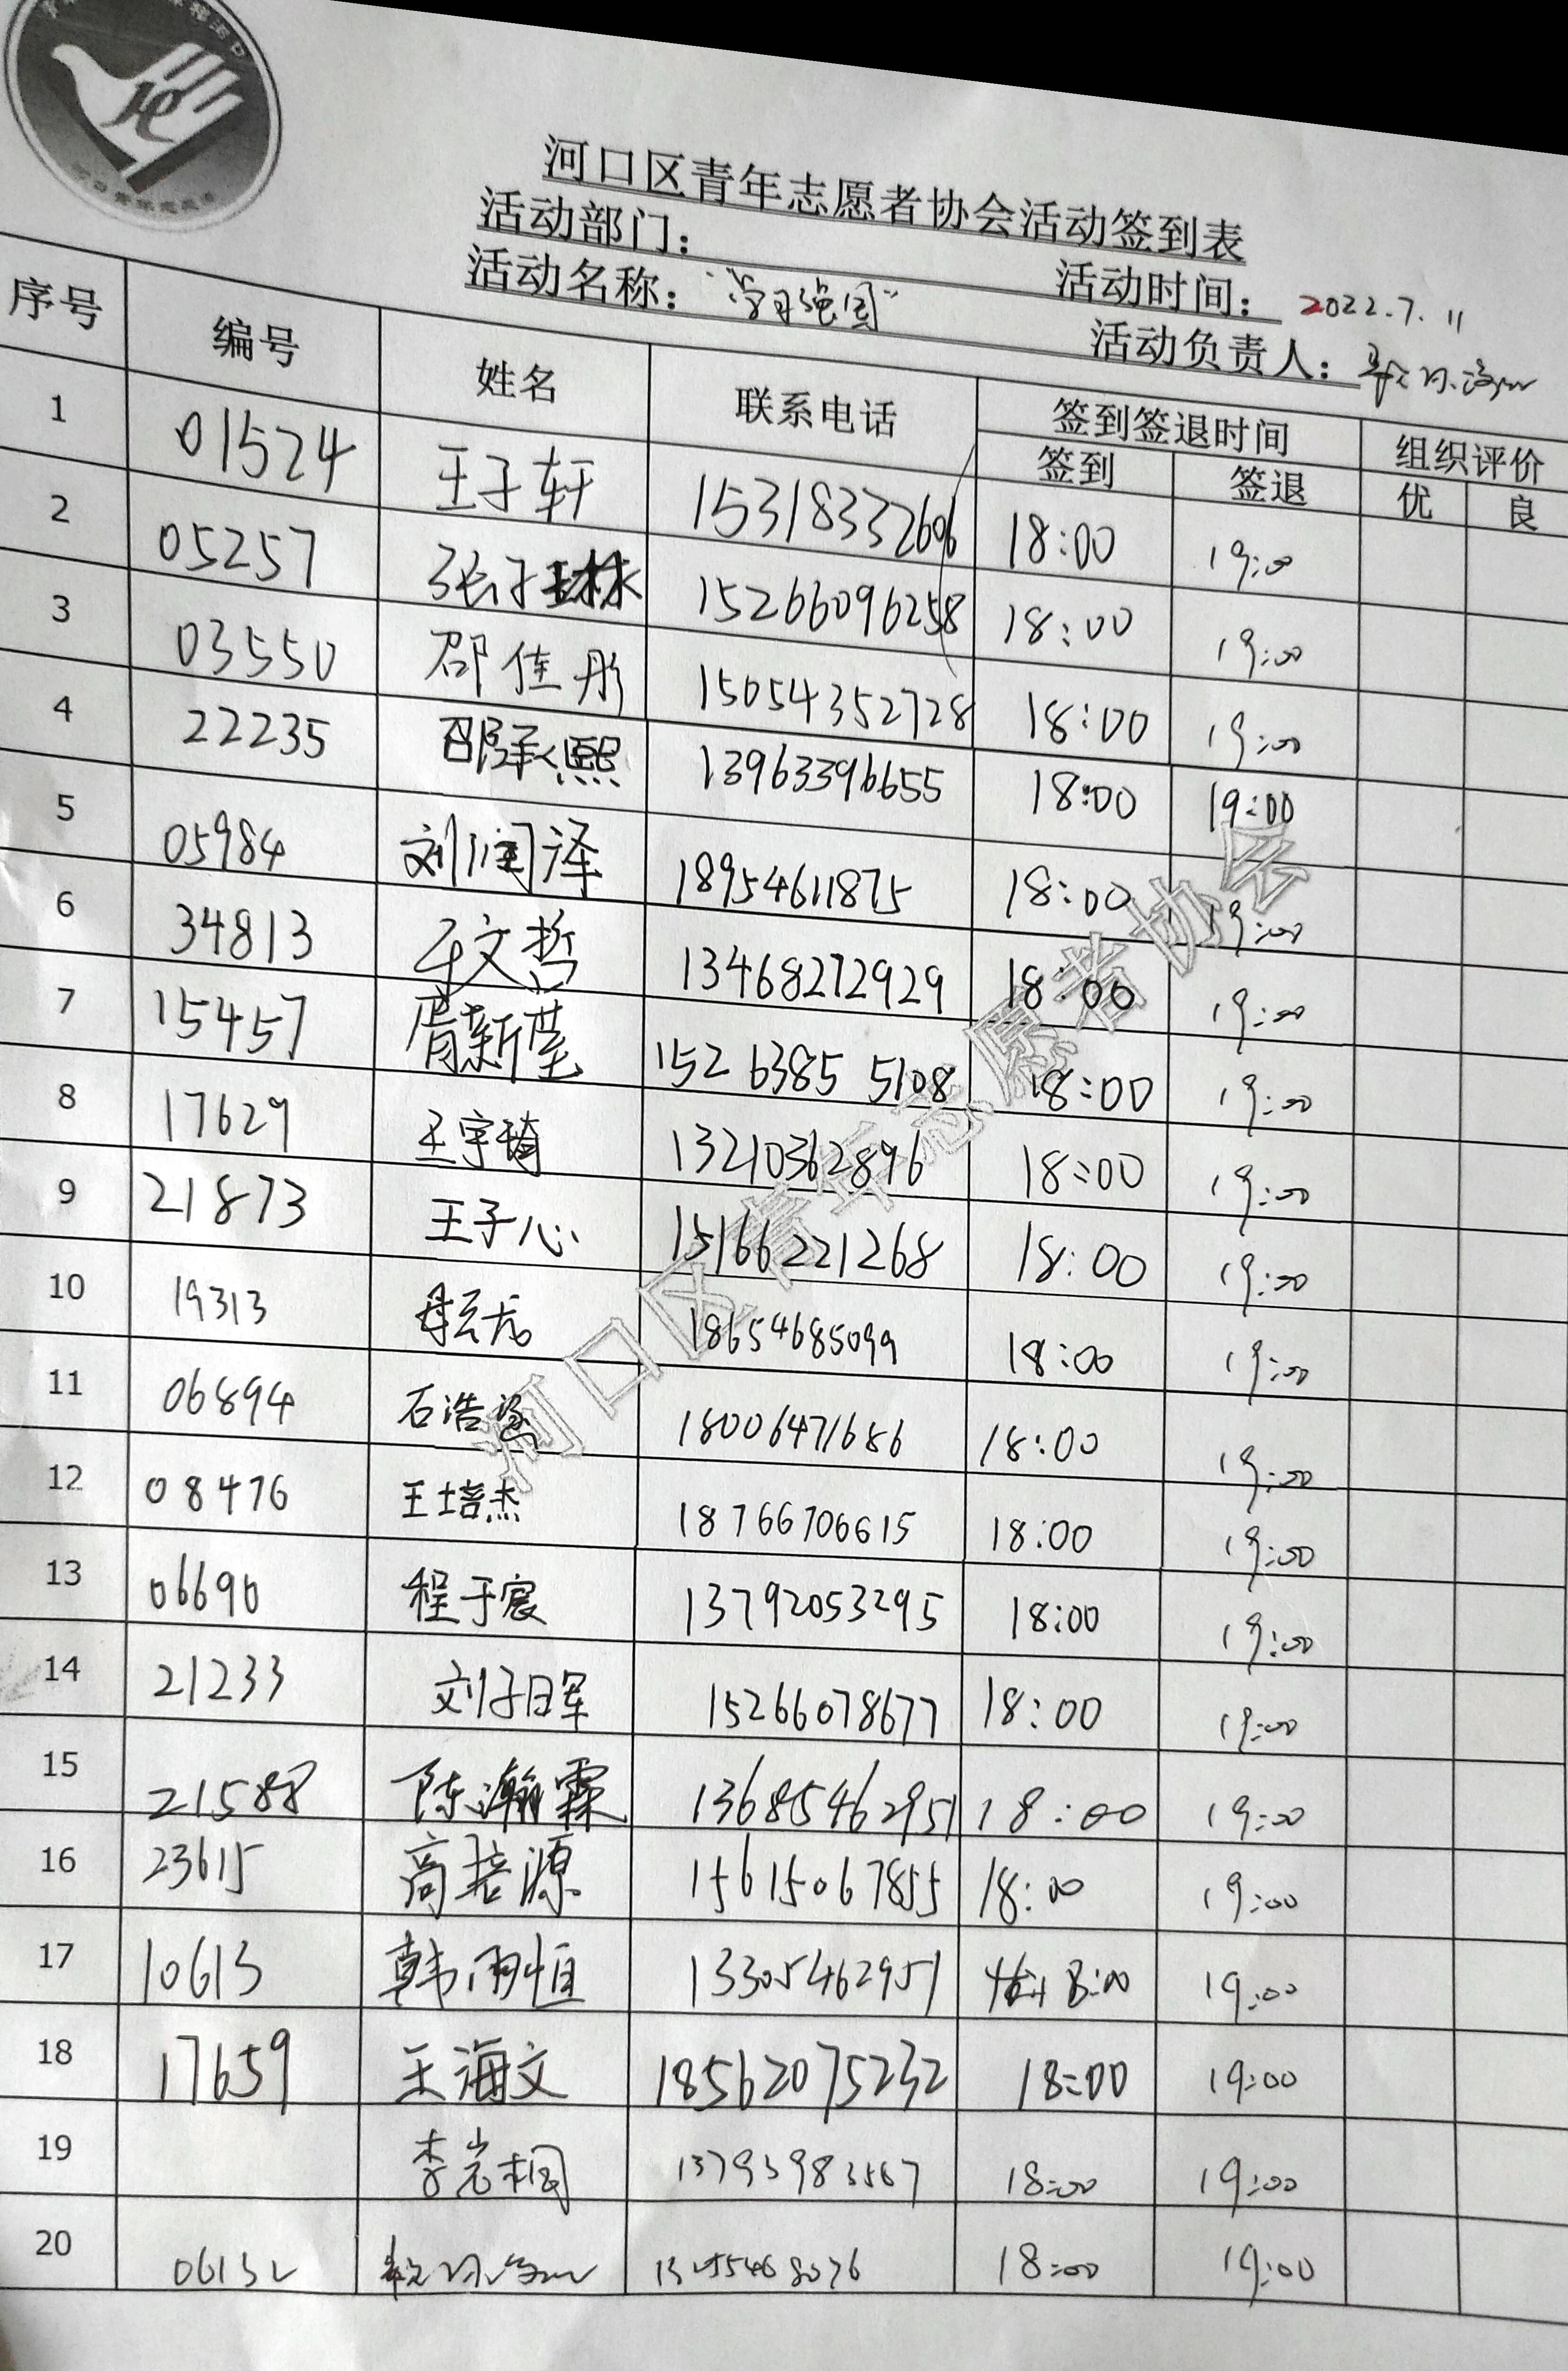 河口区青年志愿者协会活动签到表
活动部门： 活动时间： 2022.7.11
活动名称： "学习强国" 活动负责人：
序号 编号 姓名 联系电话 签到签退时间 组织评价
签到 签退 优 良
1 01524 王子轩 15318332606 18:00 19:00
2 05257 张子琳 15266096258 18:00 19:00
3 03550 邵佳彤 15054352728 18:00 19:00
4 22235 邵承熙 13963396655 18:00 19:00
5 05984 刘润泽 18954611875 18:00 19:00
6 34813 于文哲 13468272929 18:00 19:00
7 15457 胥新莹 152 6385 5108 18:00 19:00
8 17629 王宇琦 13210362896 18:00 19:00
9 21873 王子心 15166221268 18:00 19:00
10 19313 18654685099 18:00 19:00
11 06894 石浩 18006471686 18:00 19:00
12 08476 王培杰 18766706615 18:00 19:00
13 06690 程于宸 13792053295 18:00 19:00
14 21233 刘子晖 15266078677 18:00 19:00
15 21588 陈瀚霖 13685462951 18:00 19:00
16 23615 高培源 15615067855 18:00 19:00
17 10613 韩雨恒 13305462951 18:00 19:00
18 17659 王海文 18562075232 18:00 19:00
19 李岩桐 18:00 19:00
20 06132 18:00 19:00
河口区青年志愿者协会